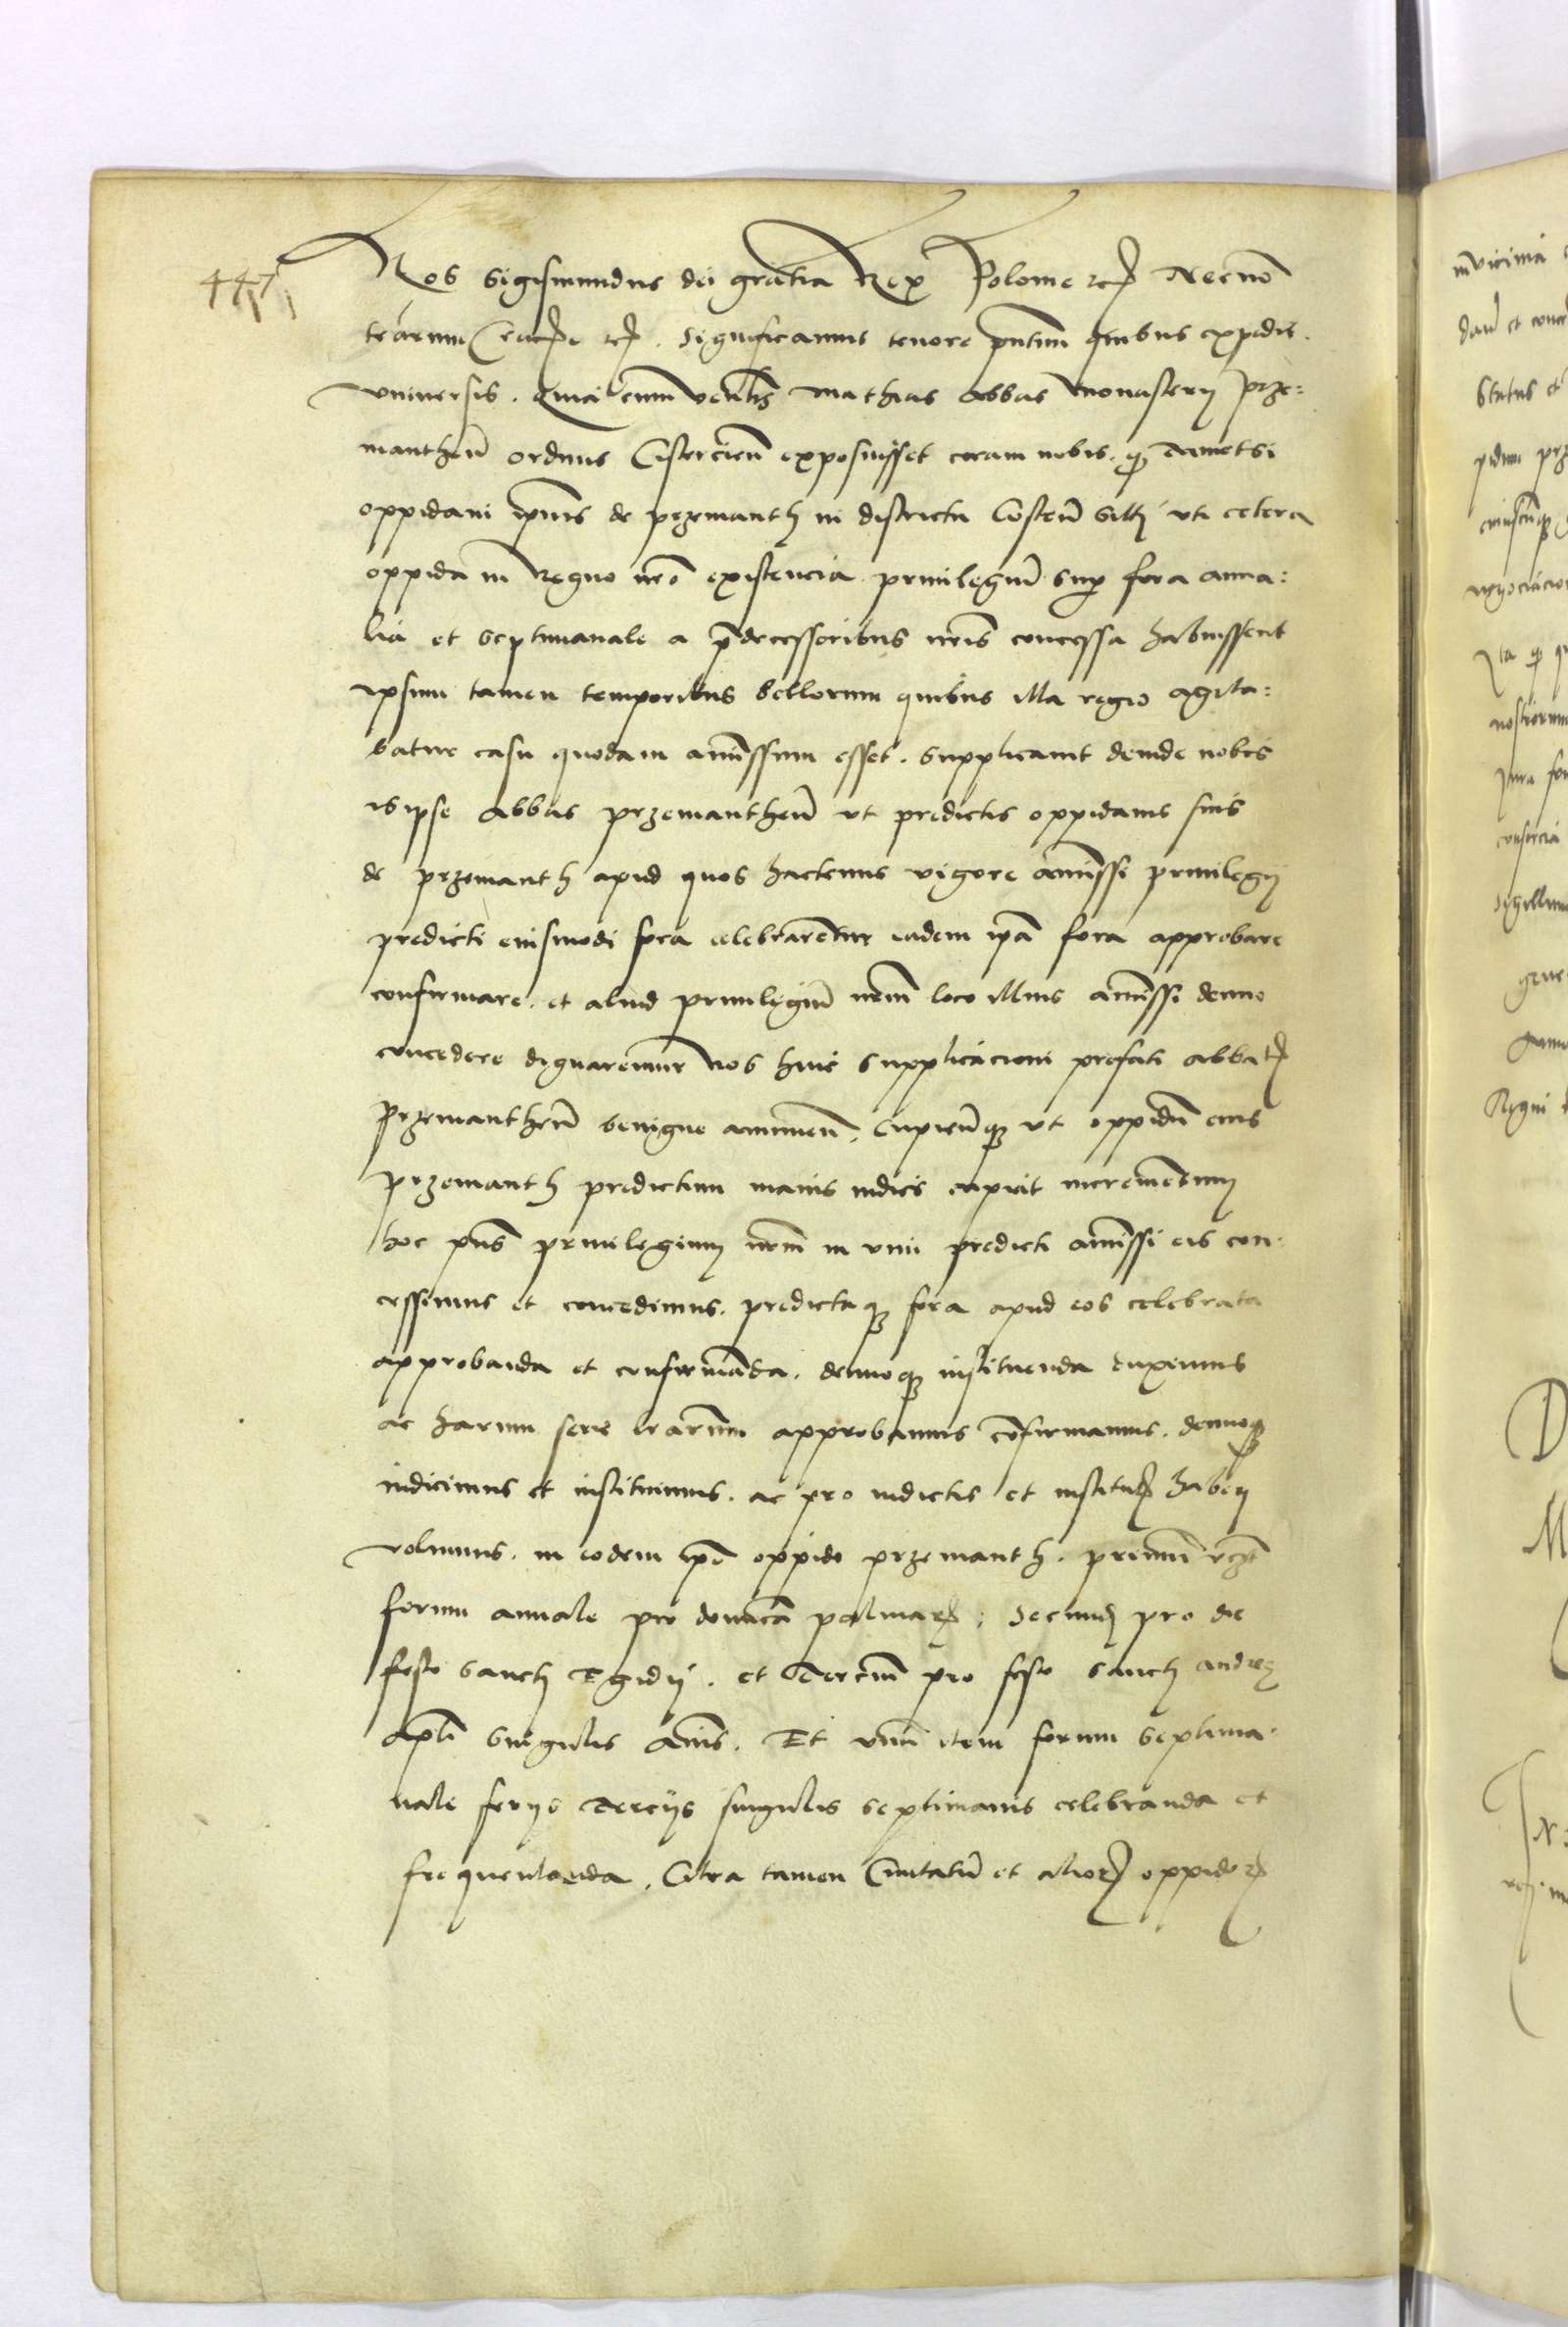 447
Nos Sigismundus dei gratia Rex Polonie etc Necnō
terarum Cracovie etc. Significamus tenore pntium quibus expedit
vniversis. Quia cum venlis Mathias abbas Monasterij Prze=
manthen ordinis Cistercien exposuisset coram nobis. qz tametsi
oppidani ipius de przemanth in districtu Costen siti uti cetera
oppida in Regno nrō existencia privilegiū sup fora annua=
lia et septimanale a predecessoribus nris concessa habuissent
ipsum tamen temporibus bellorum quibus illa regio agita=
batur casu quodam amissum esset. supplicavit deinde nobis
is ipse abbas przemanthen ut predictis oppidanis suis
de przemanth apud quos hactenus vigore amissi privilegij
predicti eiusmodi fora celebrarentur eadem ipā fora approbare
confirmare. et aliud privilegiū nrm loco illius amissi denuo
concedere dignaremur Nos huic supplicacioni prefati abbatis
Przemanthen benigne annuen. cupienqz ut oppidū eius
przemanth predictum maius indies capiat incrementum
hoc pns privilegium nrm in vim predicti amissi eis con-
cessimus et concedimus. predictaqz fora apud eos celebrata
approbanda et confirmanda. denuoqz instituenda duximus
ac harum serie lrarum approbamus cōfirmamus. denuoqz
indicimus et instituimus. ac pro indictis et institutis haberi
volumus. in eodem ipō oppido przemanth. primū vczt
forum annale pro dominica palmarum; Secundum pro die
festo sancti Egidij. et Tercium pro festo sancti andree
apli singulis annis. Et vnū item forum septima-
nale ferijs tercijs singulis septimanis celebranda et
frequentanda. Citra tamen Civitatū et aliorum oppidorum